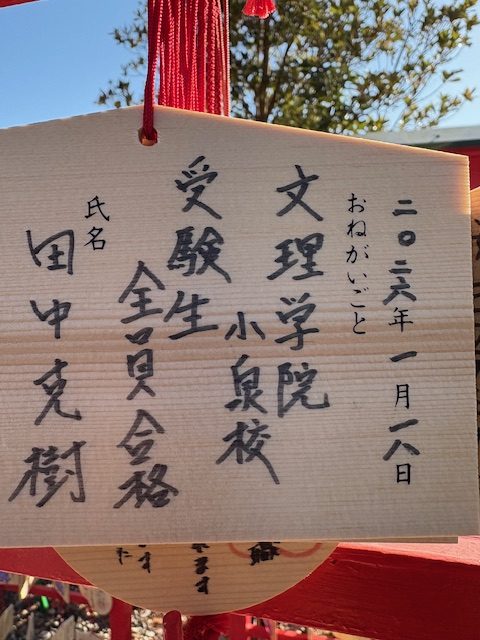 二〇二六年一月一八日
おねがいごと
文理学院
小泉校
受験生
全員合格
氏名
田中克樹
ます